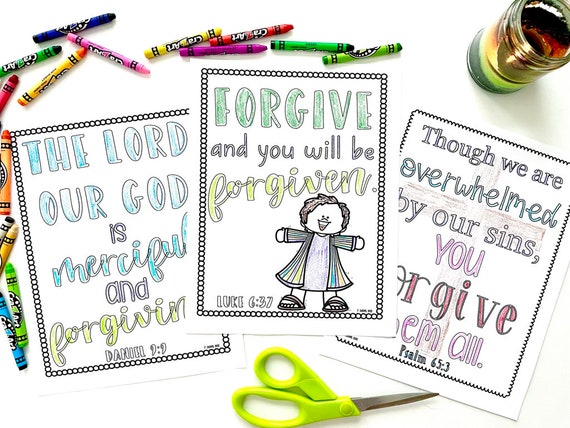 THE LORD
OUR GOD
is
merciful
and
forgiving
DANIEL 9:9
FORGIVE
and you will be
forgiven.
LUKE 6:37
Though we are
overwhelmed
by our sins,
YOU
forgive
them all.
Psalm 65:3
CraZArt
CraZArt
CraZArt